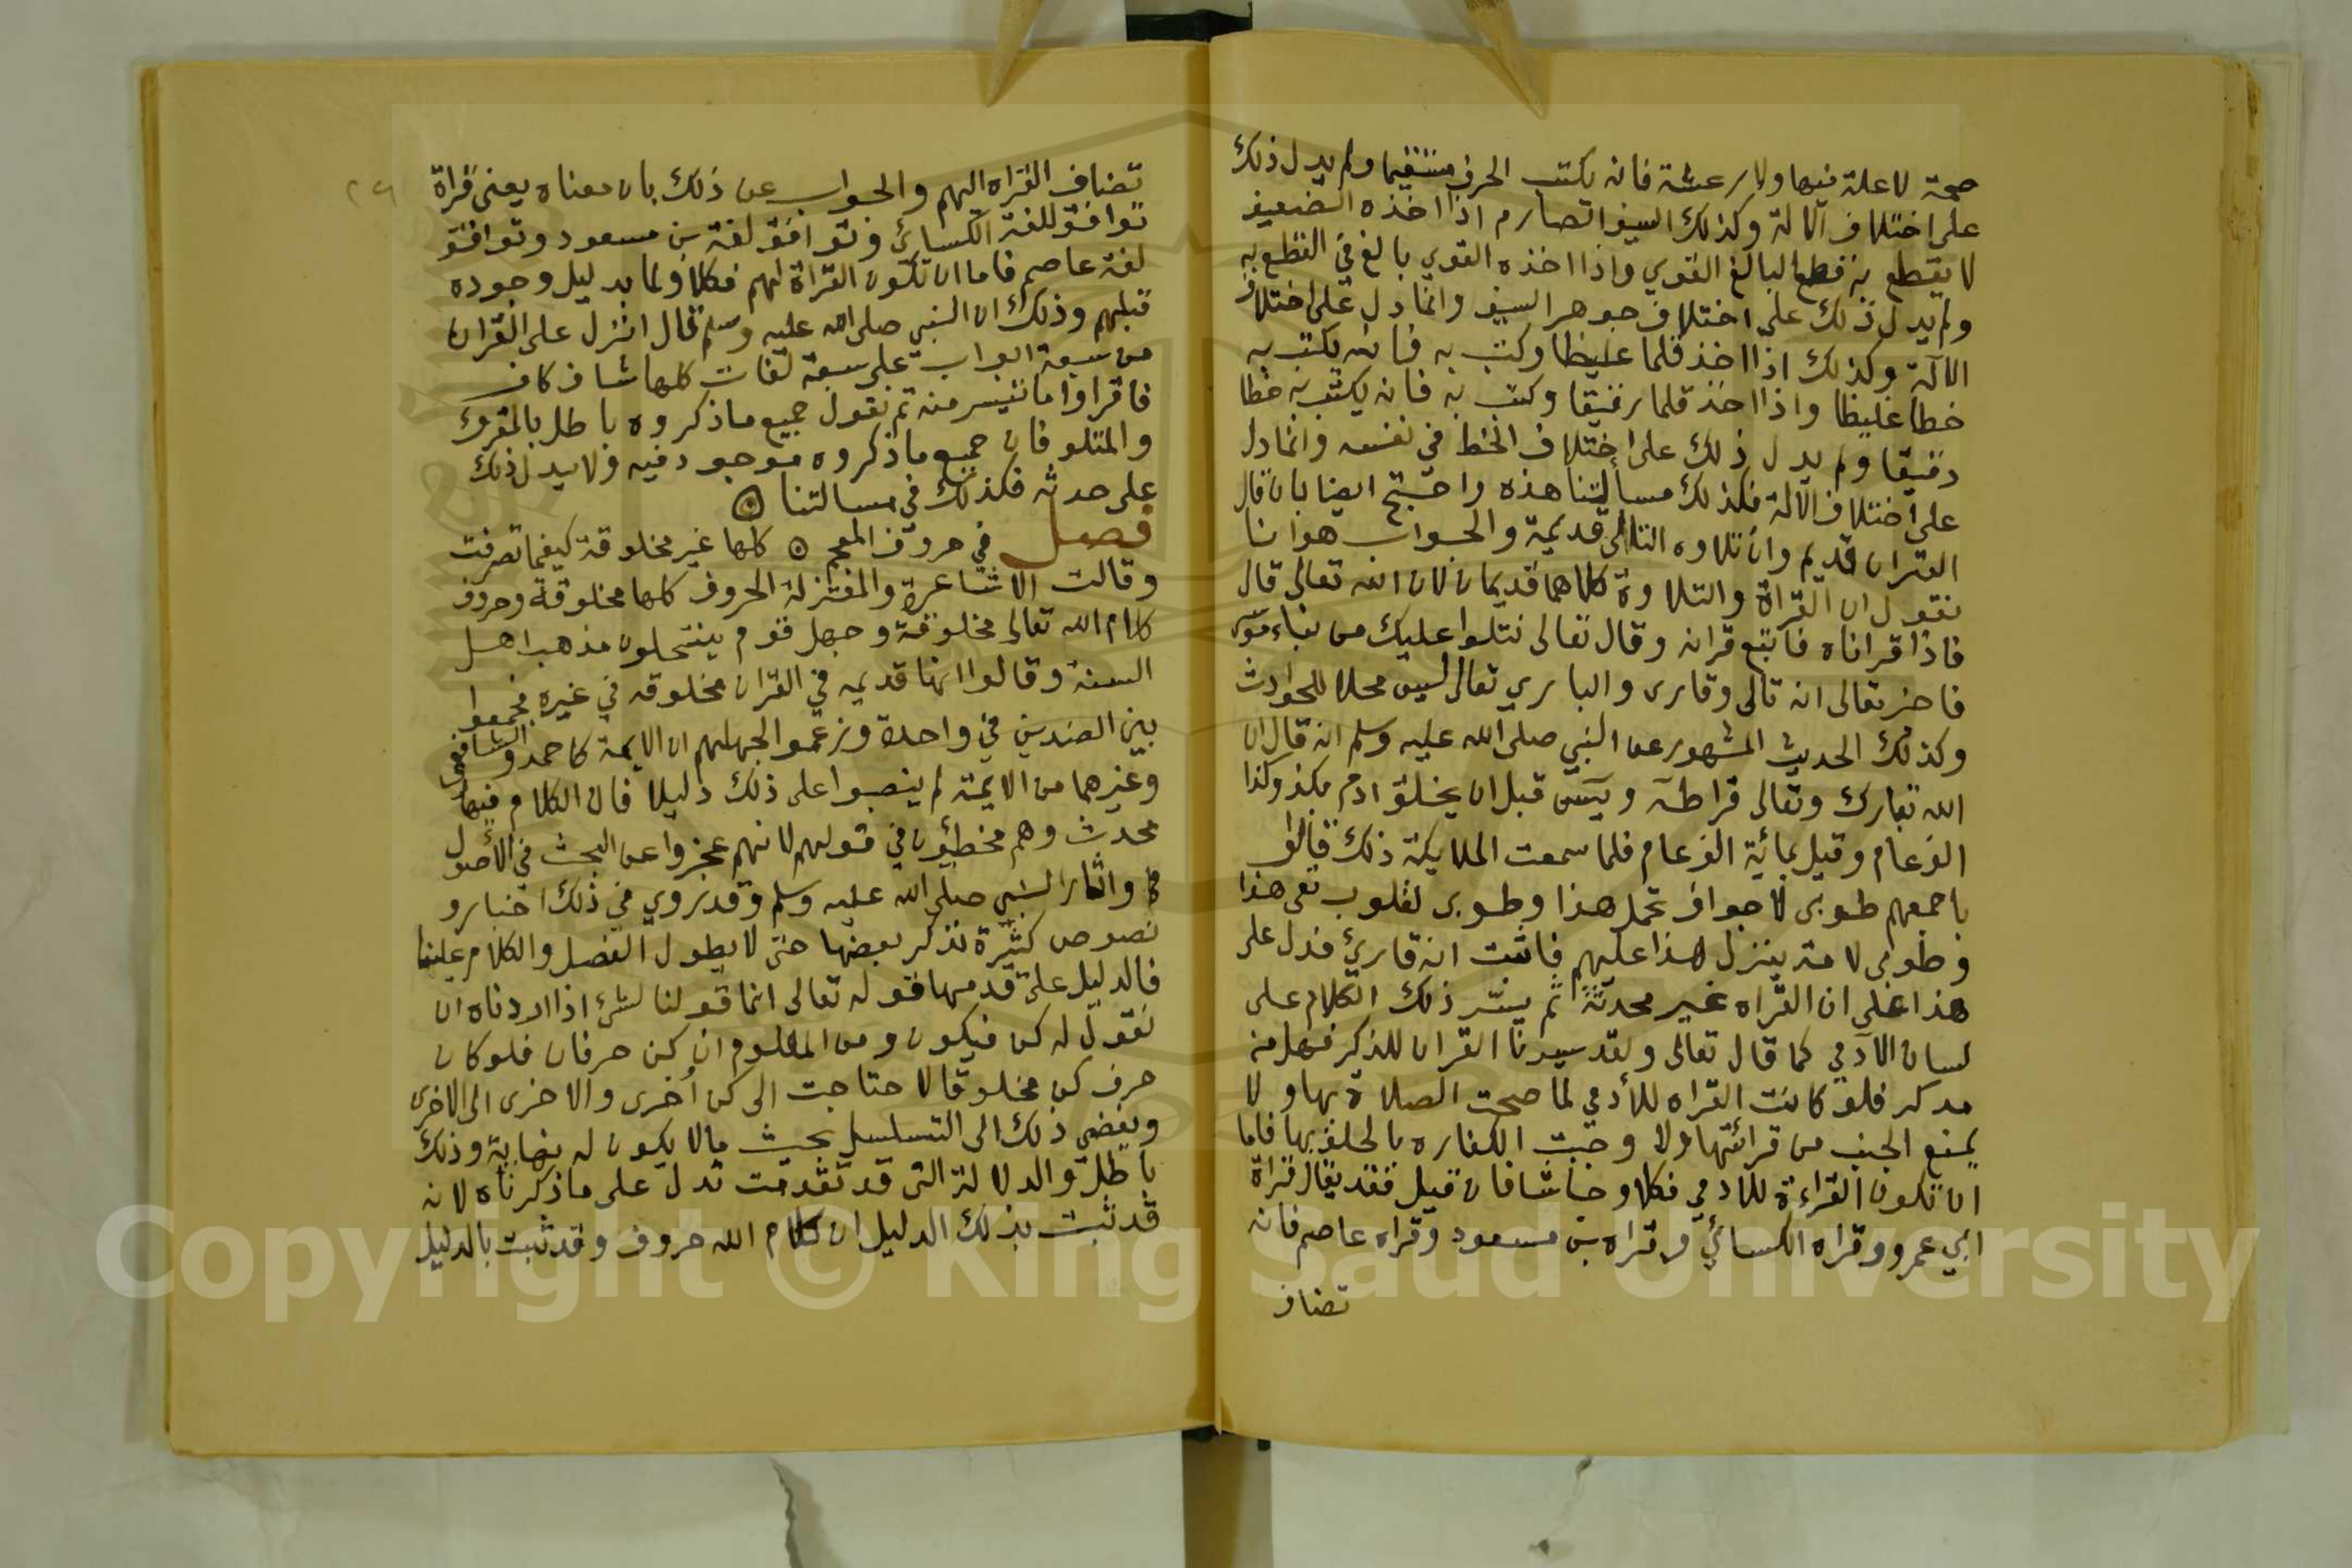 صحة لا علة فيها ولا رعشة فانه يكتب الحرف مستقيما ولم يدل ذلك
على اختلاف الالة وكذلك السيف الصارم اذا اخذه الضعيف
لا يقطع به قطع البالغ القوي واذا اخذه القوي بالغ في القطع به
ولم يدل ذلك على اختلاف جوهر السيف وانما دل على اختلاف
الالة وكذلك اذا اخذ قلما غليظا وكتب به فانه يكتب به
خطا غليظا واذا اخذ قلما رقيقا وكتب به فانه يكتب به خطا
دقيقا ولم يدل ذلك على اختلاف الخط في نفسه وانما دل
على اختلاف الالة فكذلك مسألتنا هذه واحتج ايضا بان قال
القران قديم وان تلاوه التالى قديمة والجواب هو انا
نقول ان القراة والتلاوة كلاهما قديمان لان الله تعالى قال
فاذا قراناه فاتبع قرانه وقال تعالى نتلوا عليك من نباء موسى
فاخبر تعالى انه تالى وقارى والباري تعالى ليس محلا للحوادث
وكذلك الحديث المشهور عن النبي صلى الله عليه وسلم انه قال ان
الله تبارك وتعالى قرا طه ويس قبل ان يخلق ادم بكذا وكذا
الف عام وقيل بمائية الف عام فلما سمعت الملايكة ذلك قالوا
باجمعهم طوبى لاجواف تحمل هذا وطوبى لقلوب تعى هذا
وطوبى لامة ينزل هذا عليهم فاثبت انه قاريء فدل على
هذا على ان القراه غير محدثة ثم يسّر ذلك الكلام على
لسان الآدمي كما قال تعالى ولقد يسرنا القران للذكر فهل من
مدكر فلو كانت القراه للأدمي لما صحت الصلاة بها ولا
يمنع الجنب من قرائتها ولا وجبت الكفاره بالحلف بها فاما
ان تكون القراءة للادمي فكلا وحاشا فان قيل فقد يقال قراة
ابي عمرو وقراه الكسائي وقراه بن مسعود وقراه عاصم فانه
تضاف
تضاف القراه اليهم والجواب عن ذلك بان معناه يعنى قراة
توافق للغة الكسائي وتوافق لغة بن مسعود وتوافق
لغة عاصم فاما ان تكون القراة لهم فكلا ولما بدليل وجوده
قبلهم وذلك ان النبي صلى الله عليه وسلم قال انزل على القران
من سبعة ابواب على سبعة لغات كلها شاف كاف
فاقراوا ما تيسر منه ثم نقول جميع ما ذكروه باطل بالمقرؤ
والمتلو فان جميع ما ذكروه موجود فيه ولا يدل ذلك
على حدثه فكذلك في مسالتنا
فصل في حروف المعجم كلها غير مخلوقة كيفما تصرفت
وقالت الاشاعرة والمعتزلة الحروف كلها مخلوقة وحروف
كلام الله تعالى مخلوقة وجهل قوم ينتحلون مذهب اهل
السنة وقالوا انها قديمه في القران مخلوقه في غيره فجمعوا
بين الضدين في واحدة وزعموا لجهلهم ان الايمة كاحمد والشافعى
وغيرهما من الايمة لم ينصبوا على ذلك دليلا فان الكلام فيها
محدث وهم مخطئون في قولهم لانهم عجزوا عن البحث في الأصول
واثار النبي صلى الله عليه وسلم وقد روي في ذلك اخبار و
نصوص كثيرة نذكر بعضها حتى لا يطول الفصل والكلام علينا
فالدليل على قدمها قوله تعالى انما قولنا لشئ اذا اردناه ان
نقول له كن فيكون ومن المعلوم ان كن حرفان فلو كان
حرف كن مخلوقا لاحتاجت الى كن أخرى والاخرى الى الاخرى
ويفضي ذلك الى التسلسل بحيث مالا يكون له نهاية وذلك
باطل والدلالة التى قد تقدمت تدل على ما ذكرناه لانه
قد ثبت بذلك الدليل ان كلام الله حروف وقد ثبت بالدليل
Copyright © King Saud University